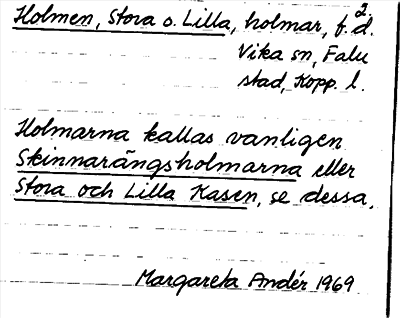 Holmen, Stora o. Lilla, holmar, f.d.
2
Vika sn, Falu
stad, Kopp. l.
Holmarna kallas vanligen
Skinnarängsholmarna eller
Stora och Lilla Kasen, se dessa.
Margareta Andér 1969